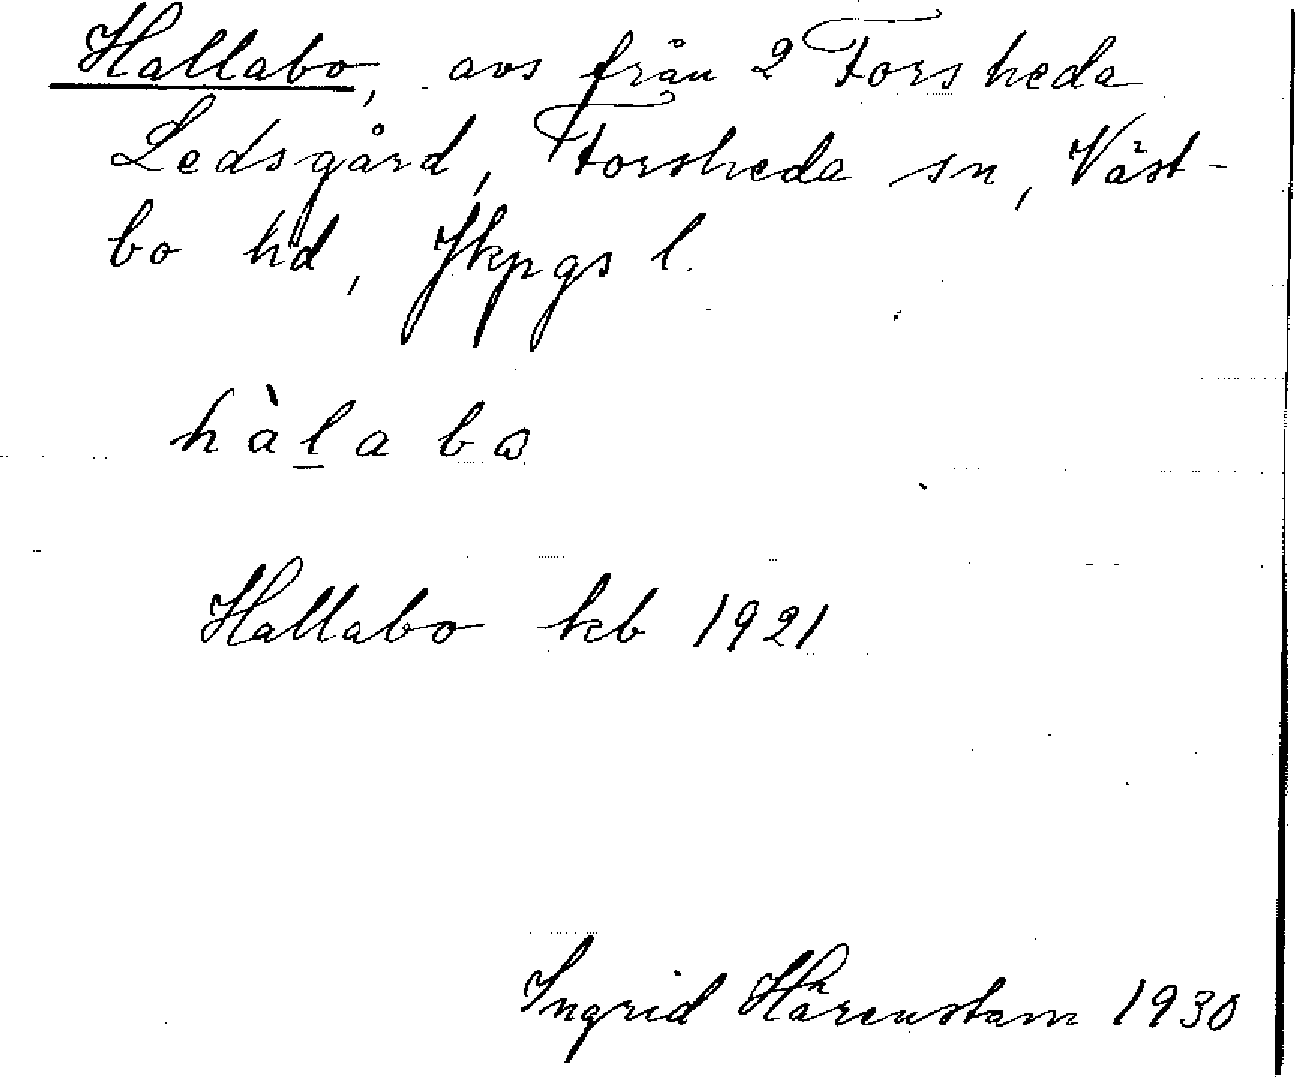 Hallabo, avs från 2 Forsheda
Ledsgård, Forsheda sn, Väst-
bo hd, Jkpgs l.
hàl̲a bɷ
Hallabo kb 1921
Ingrid Härenstam 1930